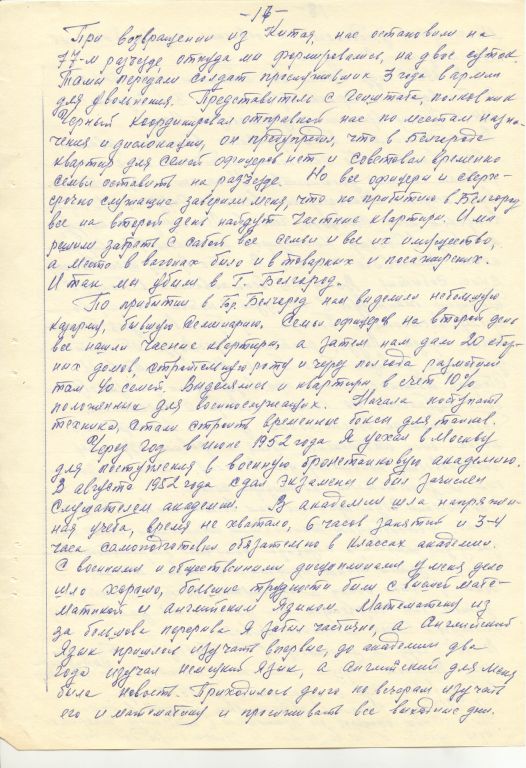 -16-
При возвращении из Китая, нас остановили на
77-м разъезде, откуда мы формировались, на двое суток.
Там передали солдат прослуживших 3 года в армии
для увольнения. Представитель с Генштаба, полковник
Черный координировал отправкой нас по местам назна-
чения и дислокации, он предупредил, что в Белгороде
квартир для семей офицеров нет и советовал временно
семьи оставить на разъезде. Но все офицеры и сверх-
срочно служащие заверили меня, что по прибытию в Белгород
все на второй день найдут частные квартиры. И мы
решили забрать с собой все семьи и все их имущество,
а место в вагонах было и в товарных и пассажирских.
И так мы убыли в г. Белгород.
По прибытии в гор. Белгород нам выделили небольшую
казарму, бывшую семинарию. Семьи офицеров на второй день
все нашли часные квартиры, а затем нам дали 20 сбор-
ных домов, строительную роту и через полгода разместили
там 40 семей. Выделялись и квартиры в счет 10%
положенных для военнослужащих. Начала поступать
техника, стали строить временные боксы для танков.
Через год в июне 1952 года я уехал в Москву
для поступления в военную бронетанковую академию.
В августе 1952 года сдал экзамены и был зачислен
слушателем академии. В академии шла напряжен-
ная учеба, время не хватало, 6 часов занятий и 3-4
часа самоподготовки обязательно в классах академии.
С военными и общественными дисциплинами у меня дело
шло хорошо, большие трудности были с высшей мате-
матикой и Английским языком. Математику из
за большова перерыва я забыл частично, а Английский
язык пришлось изучать впервые, до академии два
года изучал немецкий язык, а Английский для меня
была новость. Приходилось долго по вечерам изучать
его и математику и просиживать все выходные дни.